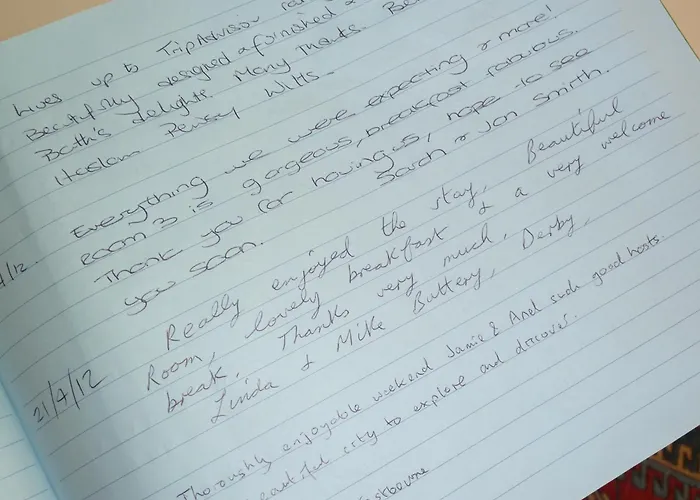 Lives up to TripAdvisor
Beautifully designed & furnished &
Bath's delights. Many Thanks.
Haslam Pewsey Wilts.
/12. Everything we were expecting & more!
Room 3 is gorgeous, breakfast fabulous.
Thank you for having us, hope to see
you soon. Sarah & Jon Smith.
21/4/12 Really enjoyed the stay, Beautiful
Room, lovely breakfast & a very welcome
break, Thanks very much,
Linda & Mike Buttery, Derby,
Thoroughly enjoyable weekend Jamie & Anel such good hosts.
beautiful city to explore and discover.